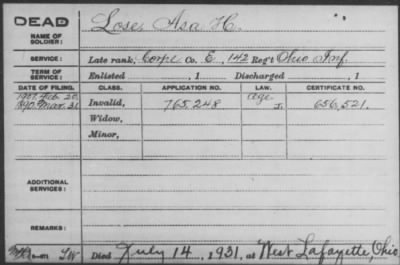 DEAD
NAME OF
SOLDIER:
Lose, Asa H.
SERVICE:
Late rank, Corpl Co. E, 142 Reg't Ohio Inf.
TERM OF
SERVICE:
Enlisted , 1 Discharged , 1
DATE OF FILING. CLASS. APPLICATION NO. LAW. CERTIFICATE NO.
1907, Feb. 20 Age
1890, Mar. 31 Invalid, 765,248 J. 656,521.
Widow,
Minor,
ADDITIONAL
SERVICES:
REMARKS:
Died July 14, 1931, at West Lafayette, Ohio